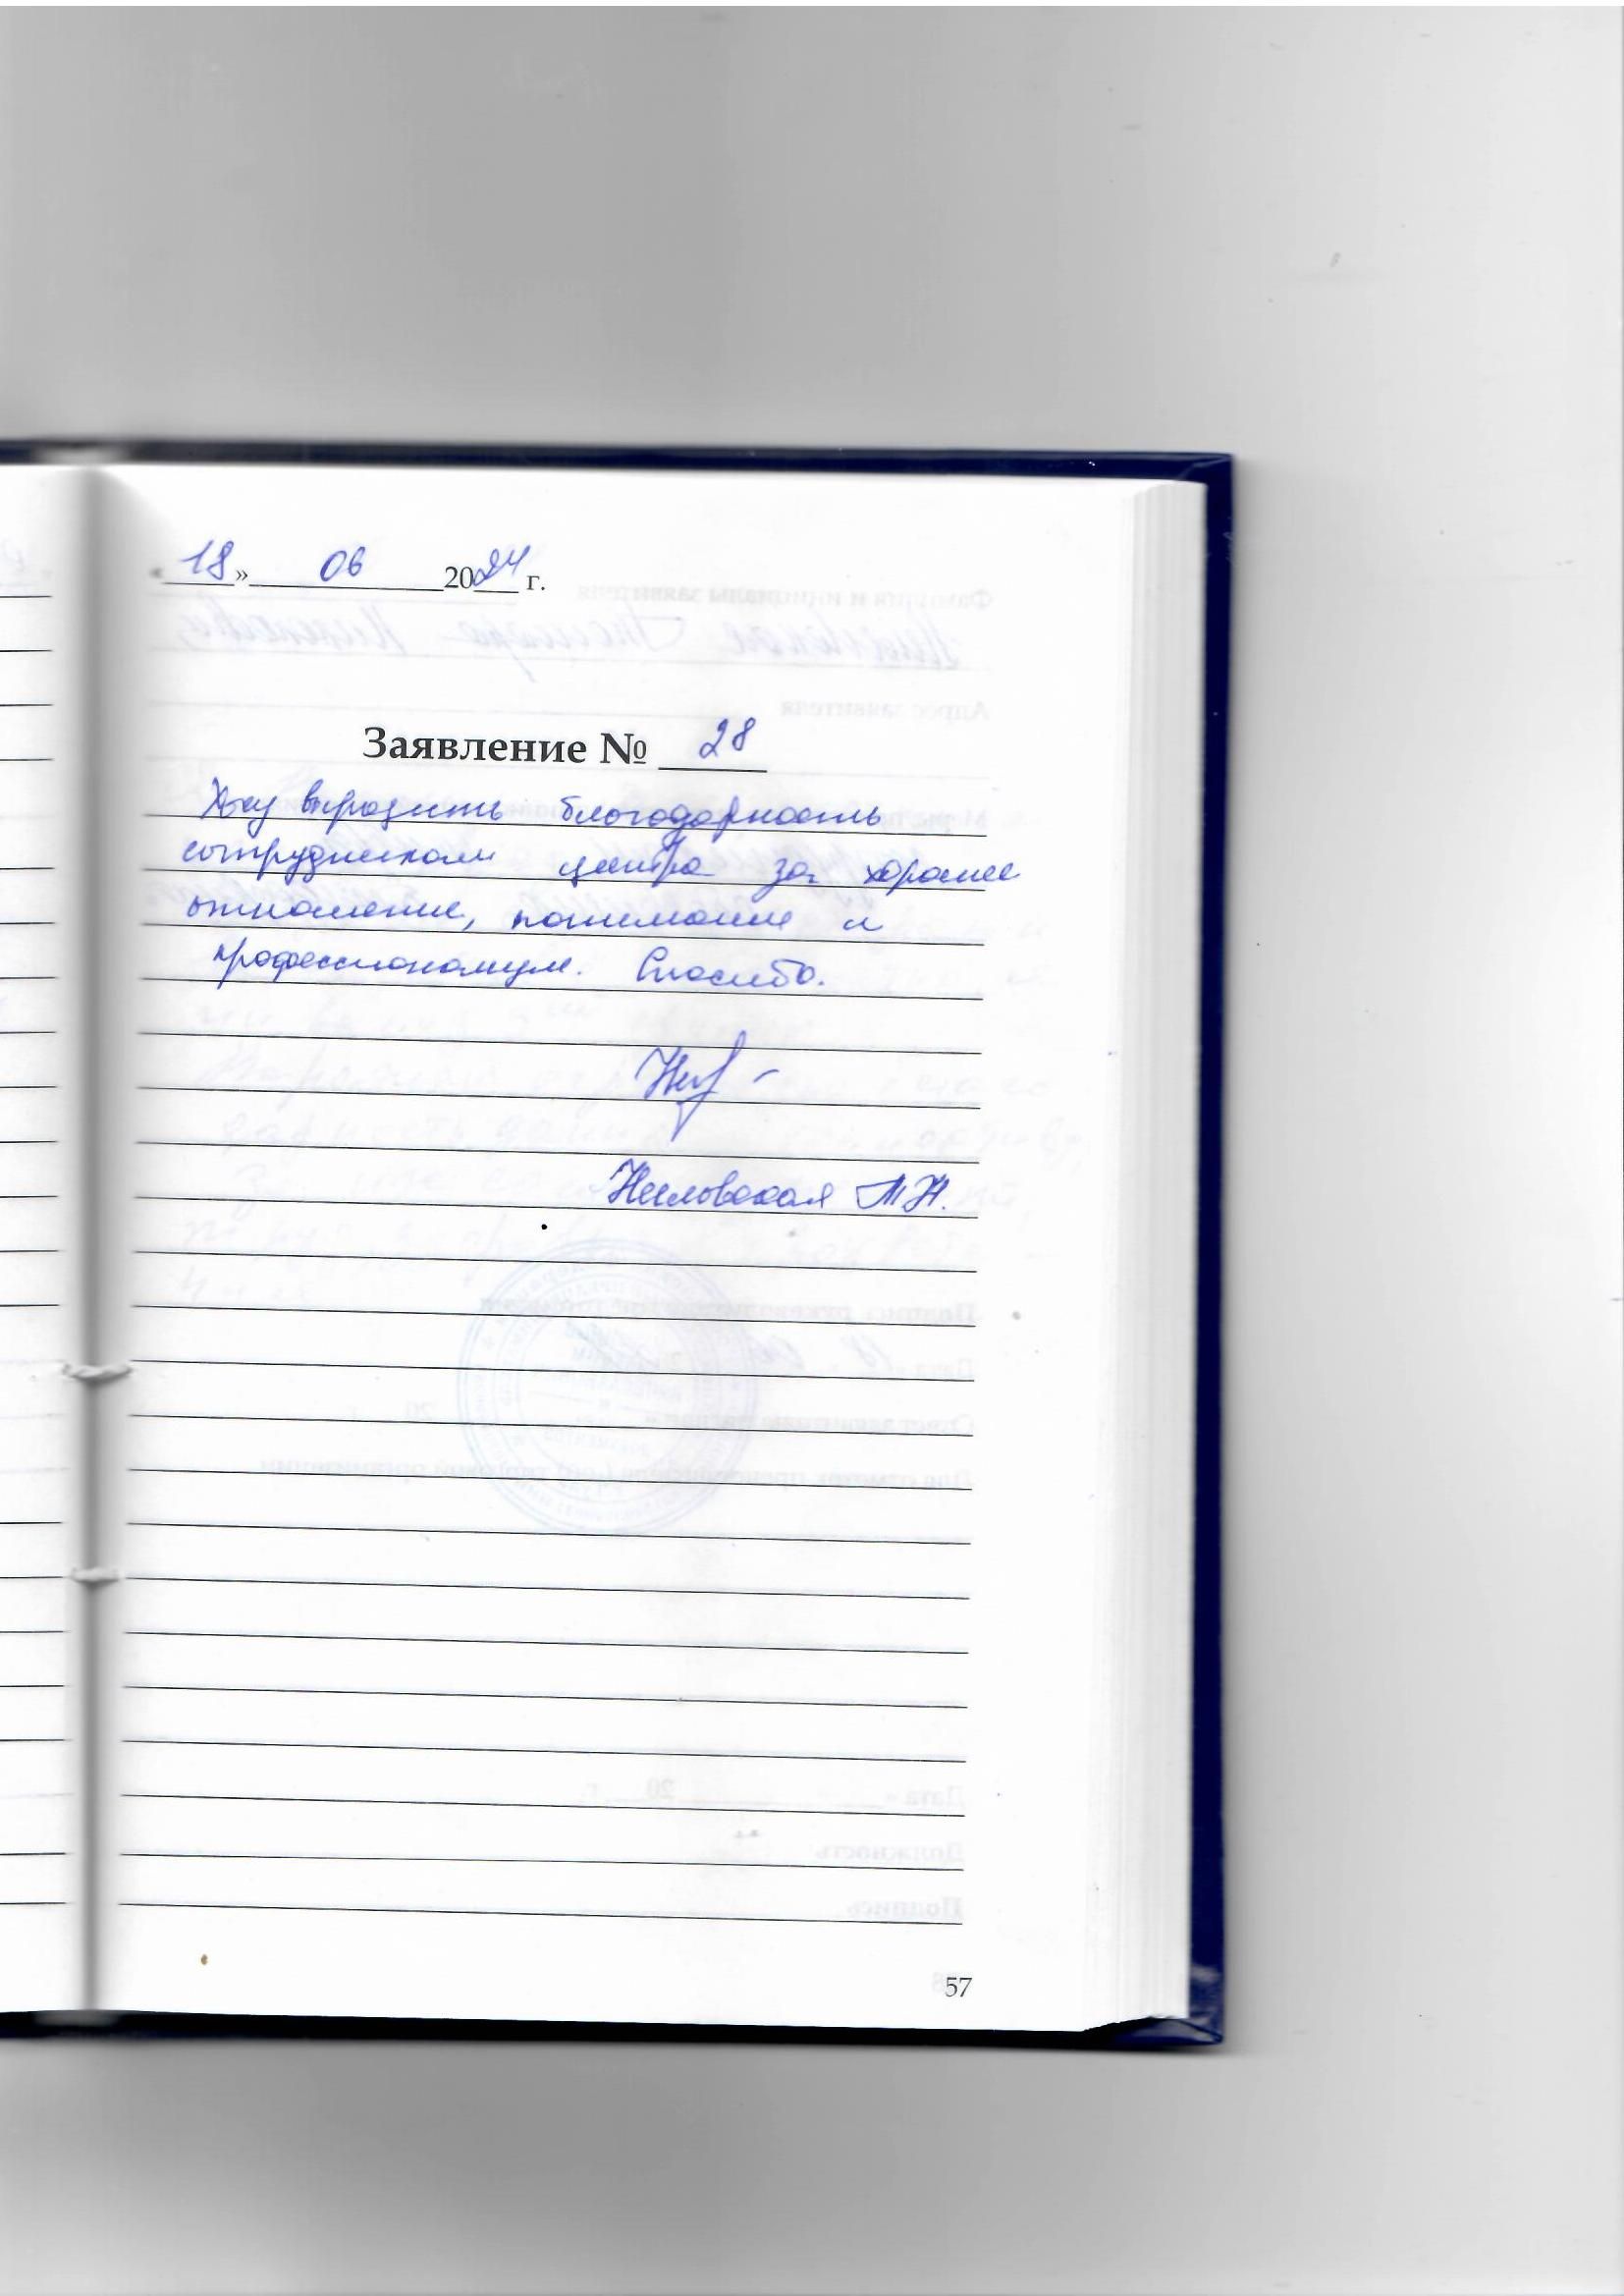 «18» 06 2024 г.
Заявление № 28
Хочу выразить благодарность
сотрудникам центра за хорошее
отношение, понимание и
профессионализм. Спасибо.
М.Н.
57